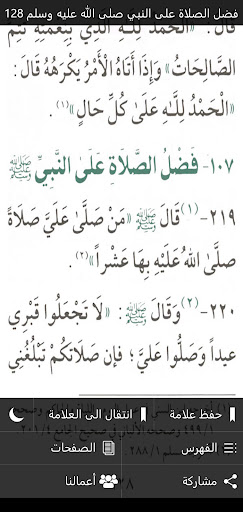 فضل الصلاة على النبي صلى الله عليه وسلم 128
قَالَ: «الْحَمْدُ لِلَّهِ الَّذِي بِنِعْمَتِهِ تَتِمُّ
الصَّالِحَاتُ» وَإِذَا أَتَاهُ الْأَمْرُ يَكْرَهُهُ قَالَ:
«الْحَمْدُ لِلَّهِ عَلَى كُلِّ حَالٍ»(١).
١٠٧- فَضْلُ الصَّلَاةِ عَلَى النَّبِيِّ ﷺ
٢١٩-(١) قَالَ ﷺ «مَنْ صَلَّى عَلَيَّ صَلَاةً
صَلَّى اللهُ عَلَيْهِ بِهَا عَشْراً»(٢).
٢٢٠-(٢) وَقَالَ ﷺ: «لَا تَجْعَلُوا قَبْرِي
عِيداً وَصَلُّوا عَلَيَّ؛ فإن صَلَاتَكُمْ تَبْلُغُنِي
حفظ علامة
انتقال الى العلامة
الفهرس
الصفحات
مشاركة
أعمالنا